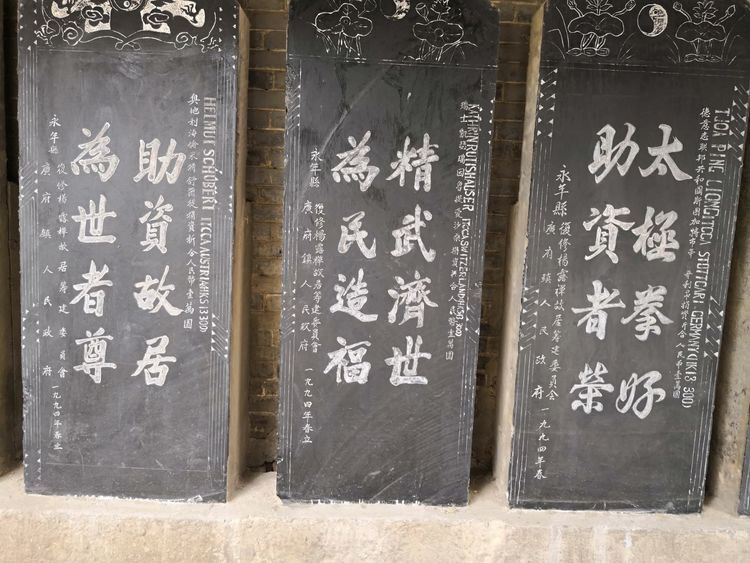 HELMUT SCHUBERT ITCCA AUSTRIA(HK$ 13 300)
捐資折合人民幣壹萬圓
助資故居
為世者尊
永年縣 復修楊露禪故居籌建委員會
廣府鎮人民政府 一九九四年春立
RUTISHAUSER ITCCA SWITZERLAND(HK$13 300)
精武濟世
為民造福
永年縣 復修楊露禪故居籌建委員會
廣府鎮人民政府 一九九四年春立
TJOA PING LIONG ITCCA STUTTGART GERMANY(HK$13 300)
德意志聯邦共和國斯圖加特市 捐資折合人民幣壹萬圓
太極拳好
助資者榮
永年縣 復修楊露禪故居籌建委員會
廣府鎮人民政府 一九九四年春